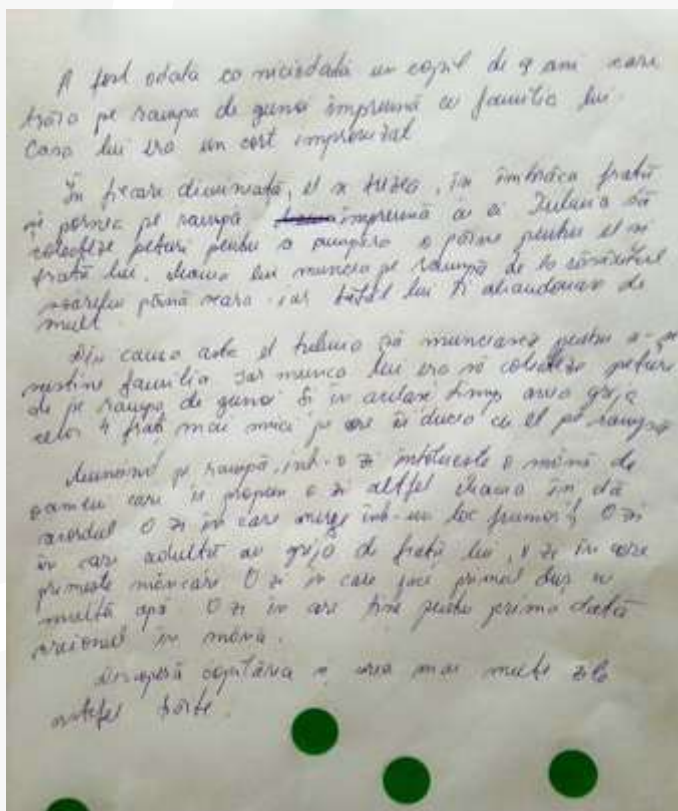 A fost odată ca niciodată un copil de 9 ani care
trăia pe rampa de gunoi împreună cu familia lui.
Casa lui era un cort improvizat
În fiecare dimineață, el se trezea, îi îmbrăca frații
și pornea pe rampă împreună cu ei Trebuia să
colecteze peturi pentru a cumpăra o pâine pentru el și
frații lui. Mama lui muncea pe rampă de la răsăritul
soarelui până seara iar tatăl lui îi abandonase de
mult
Din cauza asta el trebuia să muncească pentru a-și
susține familia Iar munca lui era să colecteze peturi
de pe rampa de gunoi Și în același timp avea grijă
celor 4 frați mai mici pe care îi ducea cu el pe rampă
Muncind pe rampă, într-o zi întâlnește o mână de
oameni care îi propun o zi altfel Mama îi dă
acordul O zi în care merge într-un loc frumos! O zi
în care adulții au grijă de frații lui, o zi în care
primește mâncare O zi în care face primul duș cu
multă apă O zi în care ține pentru prima dată
creionul în mână.
Descoperă copilăria și vrea mai multe zile
astfel